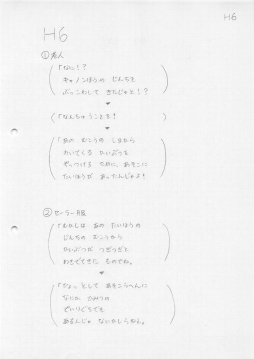 H6
H6
①老人
「なに！？
キャノンほうの じんちを
ぶっこわして きたじゃと！？
「なんちゅうことを！
「あの むこうの しまから
かいぶつを
やっつける ために、あそこに
たいほうが あったんじゃよ！
②セーラー服
「わたしは あの たいほうの
じんちの むこうから
かいぶつが つぎつぎと
わきでてきた ものでね。
「ひょっとして あそこらへんに
なにか ひみつの
でいりぐちでも
あるんじゃ ないかしらねぇ。